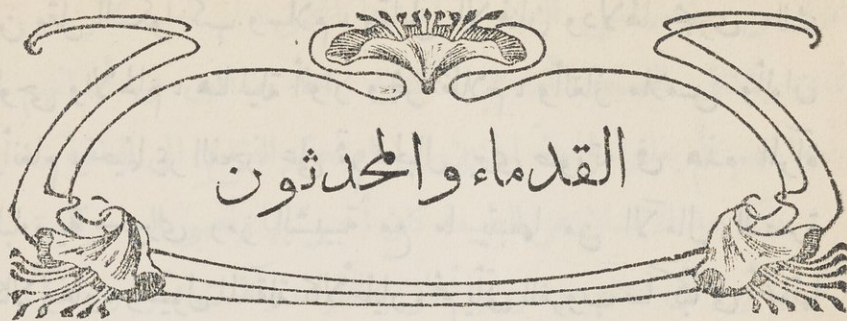 القدماء والمحدثون